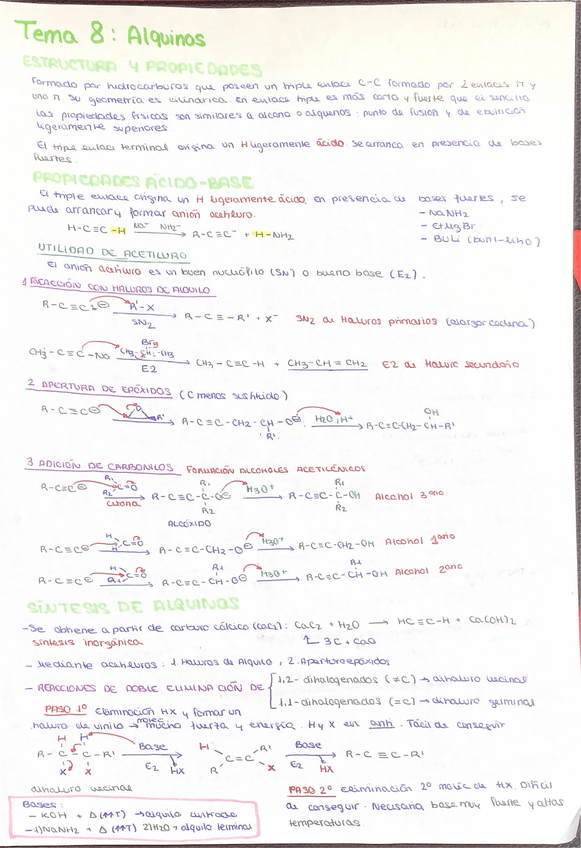 Tema 8: Alquinos
ESTRUCTURA Y PROPIEDADES
Formado por hidrocarburos que poseen un triple enlace C-C formado por 2 enlaces π y
uno π. Su geometría es cilíndrica. En enlace triple es más corto y fuerte que el sencillo
Las propiedades físicas son similares a alcano o alquenos: punto de fusión y de ebullición
ligeramente superiores.
El triple enlace terminal origina un H ligeramente ácido. Se arranca en presencia de bases
fuertes.
PROPIEDADES ÁCIDO-BASE
El triple enlace origina un H ligeramente ácido, en presencia de bases fuertes, se
puede arrancar y formar anión acetiluro.
- NaNH2
- EtMgBr
- BuLi (butil-litio)
H-C≡C-H Na+ NH2- → R-C≡C- + H-NH2
UTILIDAD DE ACETILURO
El anión acetiluro es un buen nucleófilo (SN) o buena base (E2).
1 REACCIÓN CON HALUROS DE ALQUILO
R-C≡C⊖ R'-X SN2 → R-C≡C-R' + X- SN2 de Haluros primarios (alargar cadena)
CH3-C≡C-Na CH3-CH-CH3 Br E2 → CH3-C≡C-H + CH3-CH=CH2 E2 de Haluro secundario
2 APERTURA DE EPÓXIDOS (C menos sustituido)
R-C≡C⊖ O R' → R-C≡C-CH2-CH-O⊖ R' H2O, H+ → R-C≡C-CH2-CH-R' OH
3 ADICIÓN DE CARBONILOS FORMACIÓN ALCOHOLES ACETILÉNICOS
R-C≡C⊖ R1 R2 C=O cetona → R-C≡C-C-O⊖ R1 R2 H3O+ → R-C≡C-C-OH R1 R2 Alcohol 3ario
ALCÓXIDO
R-C≡C⊖ H H C=O → R-C≡C-CH2-O⊖ H3O+ → R-C≡C-CH2-OH Alcohol 1ario
R-C≡C⊖ H R1 C=O → R-C≡C-CH-O⊖ R1 H3O+ → R-C≡C-CH-OH R1 Alcohol 2ario
SÍNTESIS DE ALQUINOS
- Se obtiene a partir de carburo cálcico (CaC2): CaC2 + H2O → HC≡C-H + Ca(OH)2
síntesis inorgánica 3C + CaO
- Mediante acetiluros: 1. Haluros de Alquilo, 2. Apertura epóxidos
- REACCIONES DE DOBLE ELIMINACIÓN DE
1,2- dihalogenados (≠C) → dihaluro vecinal
1,1- dihalogenados (=C) → dihaluro geminal
PASO 1º Eliminación HX y formar un
haluro de vinilo → mucha fuerza y energía. H y X en anti. Fácil de conseguir
R-C-C-R' H H X X Base E2 HX → H R C=C R' X Base E2 HX → R-C≡C-R'
dihaluro vecinal
PASO 2º eliminación 2º molec de HX. Difícil
de conseguir. Necesaria base muy fuerte y altas
temperaturas.
Bases:
- KOH + Δ (↑↑T) →
- 1) NaNH2 + Δ (↑↑T) 2) H2O → alquilo terminal